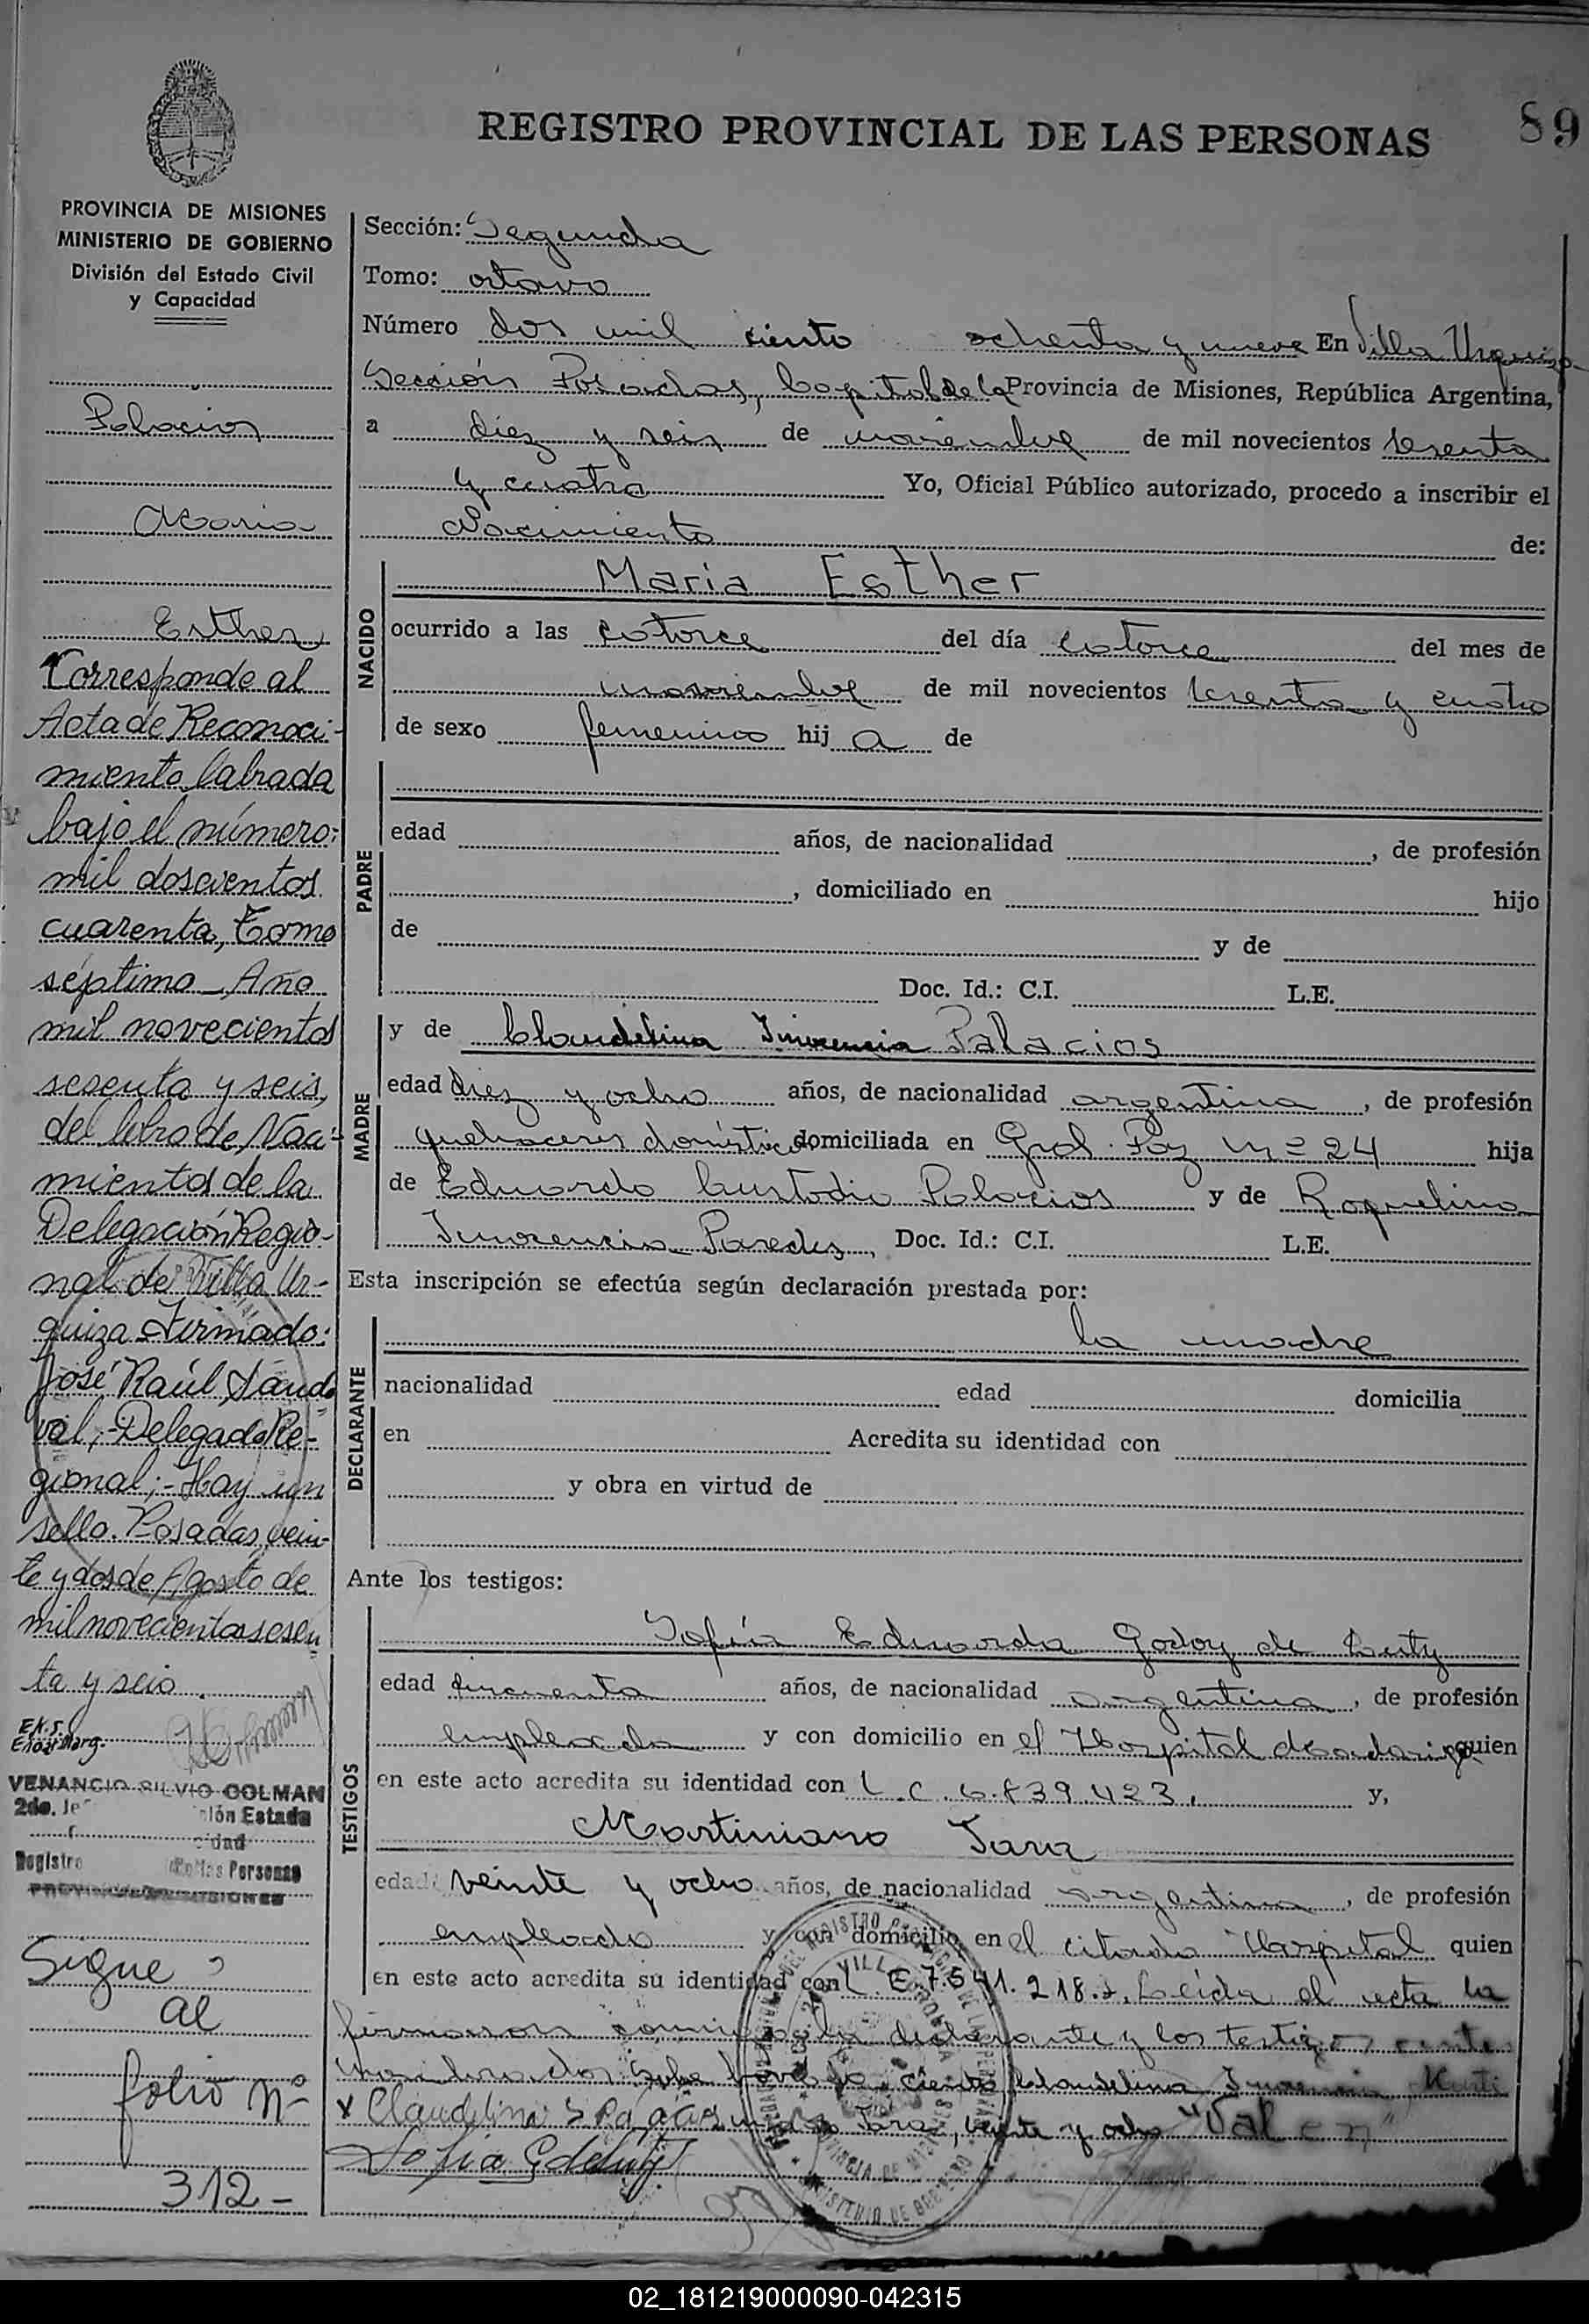 REGISTRO PROVINCIAL DE LAS PERSONAS
89
PROVINCIA DE MISIONES
MINISTERIO DE GOBIERNO
División del Estado Civil
y Capacidad
Palacios
Maria
Esther
Corresponde al
Acta de Reconoci-
miento labrada
bajo el número:
mil doscientos
cuarenta, Tomo
séptimo - Año
mil novecientos
sesenta y seis,
del libro de Naci-
mientos de la
Delegación Regio-
nal de Villa Ur-
quiza. Firmado:
José Raúl Sando
val;- Delegado Re-
gional;- Hay un
sello. Posadas, vein-
te y dos de Agosto de
mil novecientos sesen
ta y seis.
E.K.S.
VENANCIO SILVIO COLMAN
2do. Je ión Estado
idad
Registro de las Personas
PROVINCIA DE MISIONES
Sigue
al
folio Nº
312-
Sección: Segunda
Tomo: octavo
Número dos mil ciento ochenta y nueve En Villa Urquiza-
Sección Posadas, Capital de la Provincia de Misiones, República Argentina,
a diez y seis de noviembre de mil novecientos sesenta
y cuatro Yo, Oficial Público autorizado, procedo a inscribir el
Nacimiento de:
NACIDO
Maria Esther
ocurrido a las catorce del día catorce del mes de
noviembre de mil novecientos sesenta y cuatro
de sexo femenino hij a de
PADRE
edad años, de nacionalidad , de profesión
, domiciliado en hijo
de y de
Doc. Id.: C.I. L.E.
MADRE
y de Claudelina Inocencia Palacios
edad diez y ocho años, de nacionalidad argentina, de profesión
quehaceres domésticos domiciliada en Gral. Paz nº 24 hija
de Eduardo Custodio Palacios y de Roquelina
Inocencia Paredes, Doc. Id.: C.I. L.E.
Esta inscripción se efectúa según declaración prestada por:
DECLARANTE
la madre
nacionalidad edad domicilia
en Acredita su identidad con
y obra en virtud de
Ante los testigos:
TESTIGOS
Sofía Eduarda Godoy de
edad cincuenta años, de nacionalidad argentina, de profesión
empleada y con domicilio en el Hospital Madariaga quien
en este acto acredita su identidad con L.C. 6.839.423, y,
Martiniano Jara
edad veinte y ocho años, de nacionalidad argentina, de profesión
empleado y con domicilio en el citado Hospital quien
en este acto acredita su identidad con L.E. 7.541.218.-. Leída el acta la
firmaron conmigo la declarante y los testigos
ciento Claudelina Inocencia
x Claudelina Jara, veinte y ocho "Valen"
02_181219000090-042315